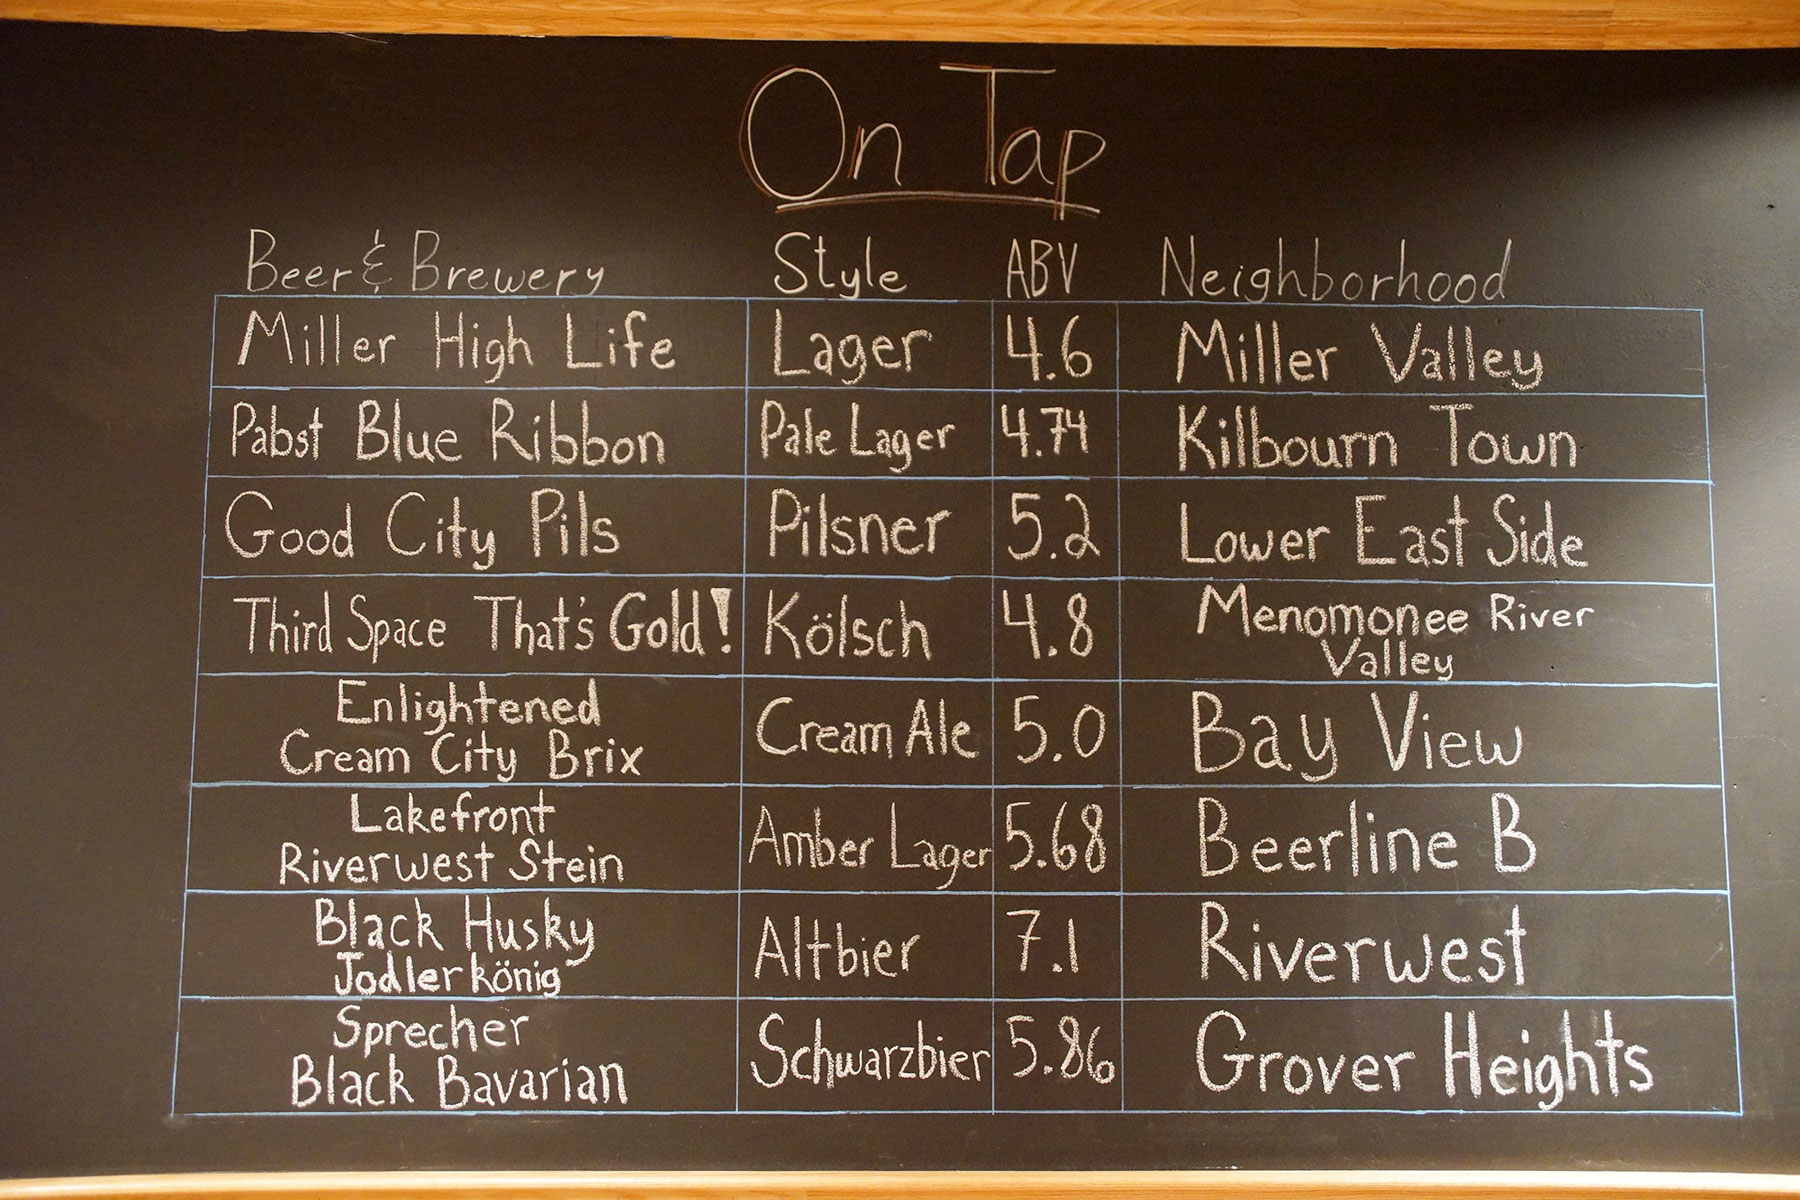 On Tap
Beer & Brewery Style ABV Neighborhood
Miller High Life Lager 4.6 Miller Valley
Pabst Blue Ribbon Pale Lager 4.74 Kilbourn Town
Good City Pils Pilsner 5.2 Lower East Side
Third Space That's Gold! Kölsch 4.8 Menomonee River
Valley
Enlightened
Cream City Brix Cream Ale 5.0 Bay View
Lakefront
Riverwest Stein Amber Lager 5.68 Beerline B
Black Husky
Jodlerkönig Altbier 7.1 Riverwest
Sprecher
Black Bavarian Schwarzbier 5.86 Grover Heights